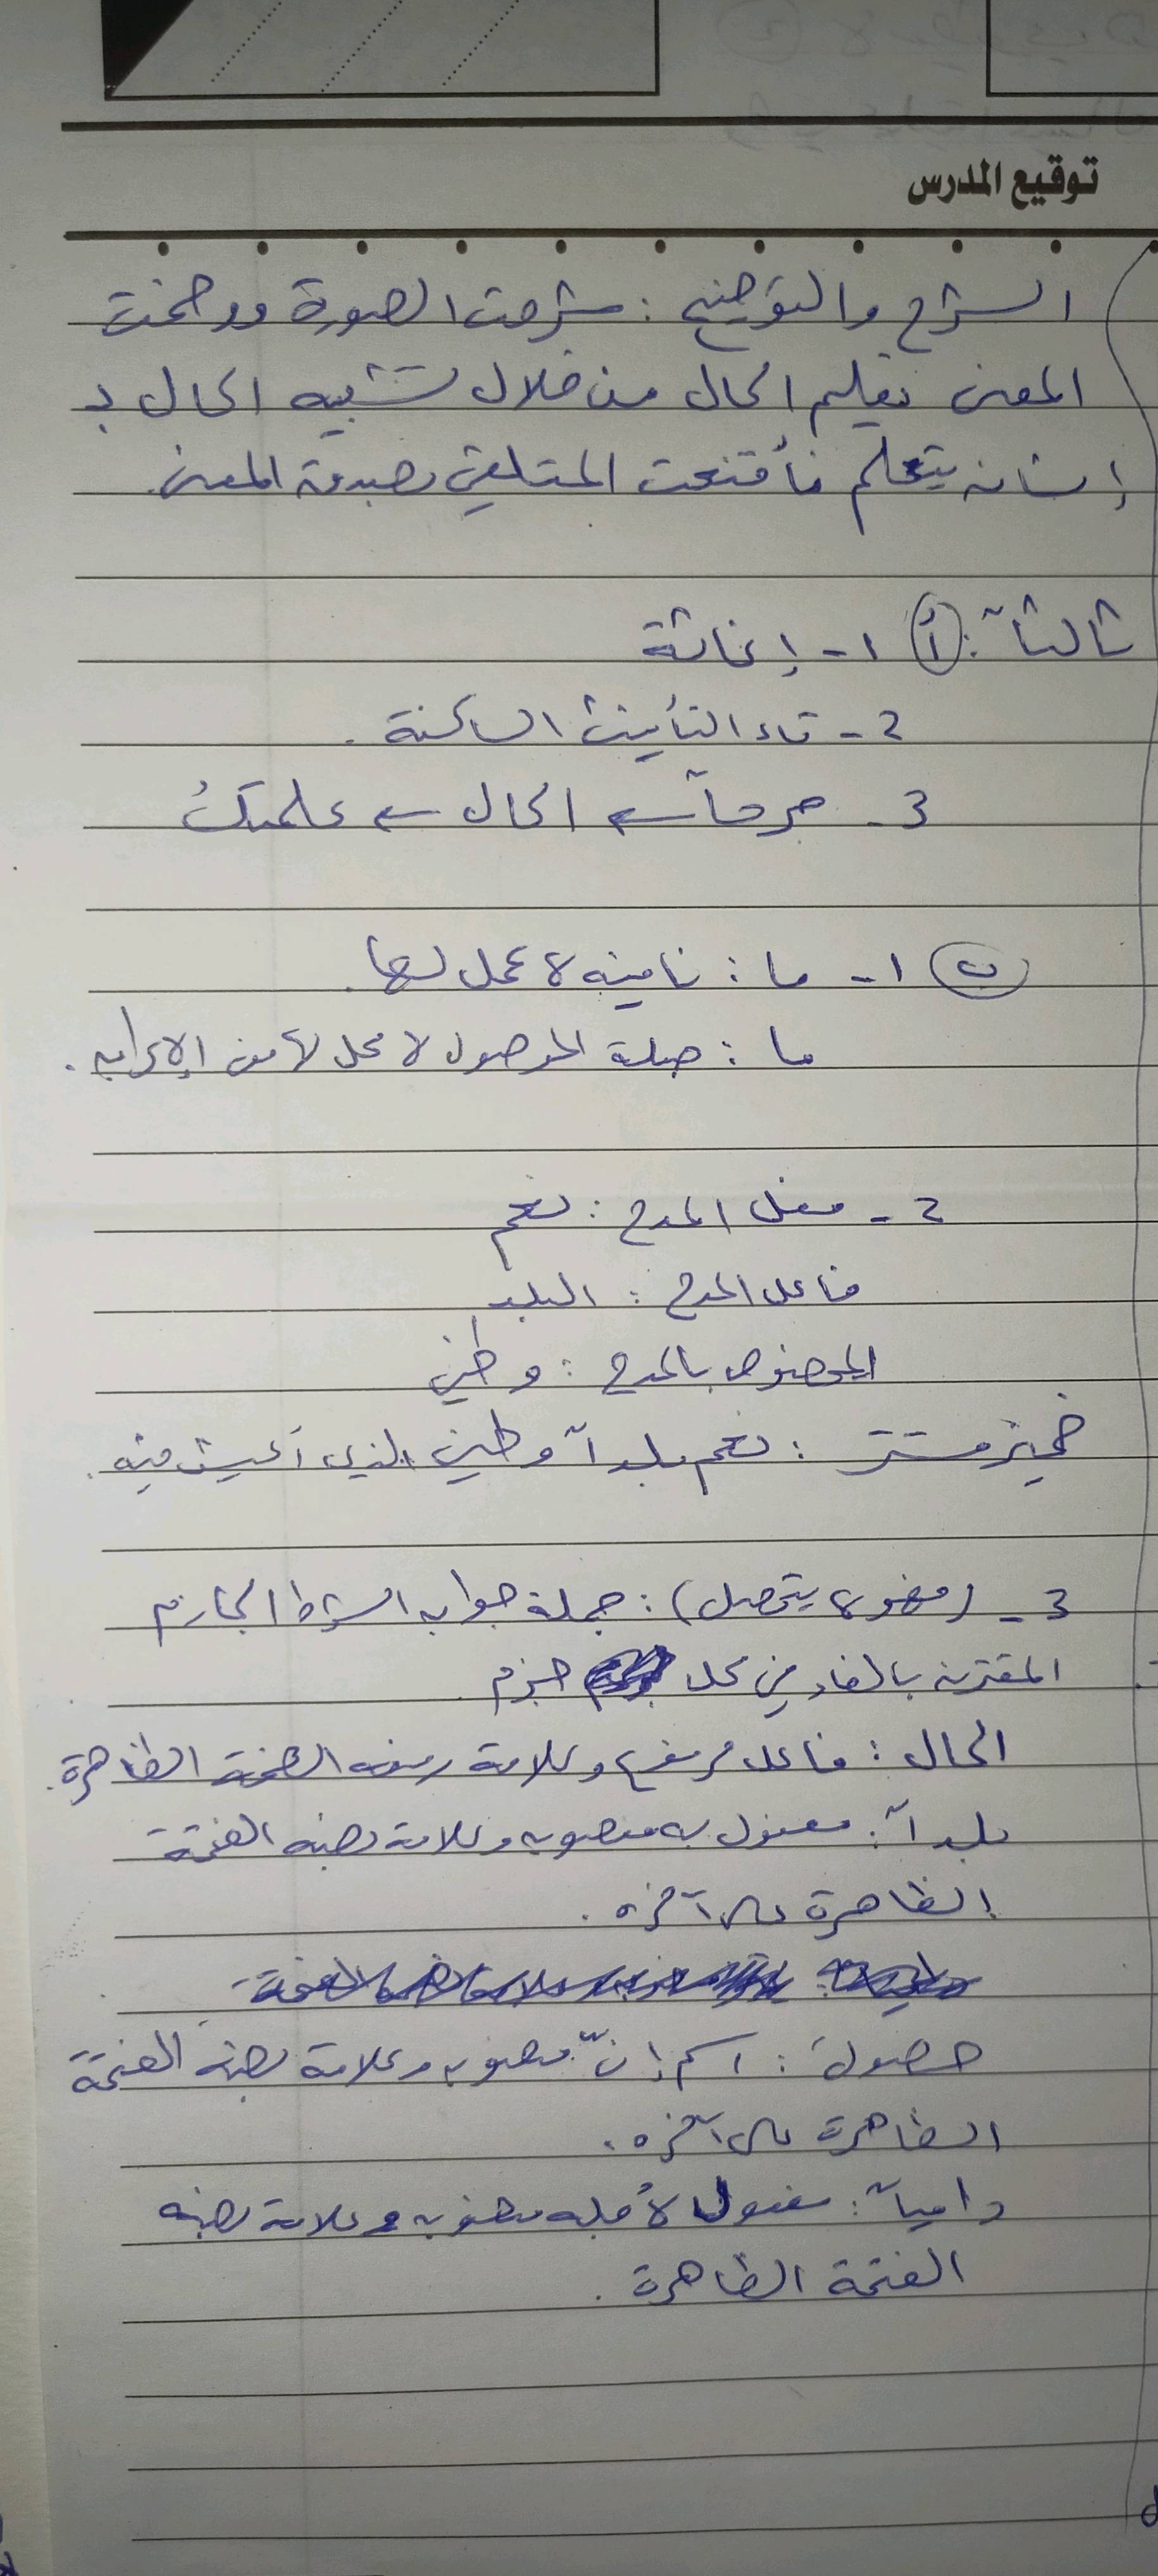 توقيع المدرس
الشرح والتوضيح : شرحت الصورة ووضحت
المعنى تعليم الحال من خلال تشبيه الحال بـ
إنسان يتعلم فأقنعت المتلقي بصدق المعنى.
ثالثاً : أ ١- إغاثة
2- تاء التأنيث الساكنة .
3- صرحاً ← الحال ← علمتك
ب ١- ما : نافية لا عمل لها .
ما : صلة الموصول لا محل لها من الإعراب .
2- فعل المدح : نعم
فاعل المدح : البلد
المخصوص بالمدح : وطني
ضمير مستتر : نعم بلداً وطني الذي أعيش فيه .
3- (فهو لا يتحصل) : جملة جواب الشرط الجازم
المقترن بالفاء في محل جزم
الحال : فاعل مرفوع وعلامة رفعه الضمة الظاهرة .
بلداً : مفعول به منصوب وعلامة نصبه الفتحة
الظاهرة على آخره .
حصول : اسم إنّ منصوب وعلامة نصبه الفتحة
الظاهرة على آخره .
: مفعول لأجله منصوب وعلامة نصبه
الفتحة الظاهرة .